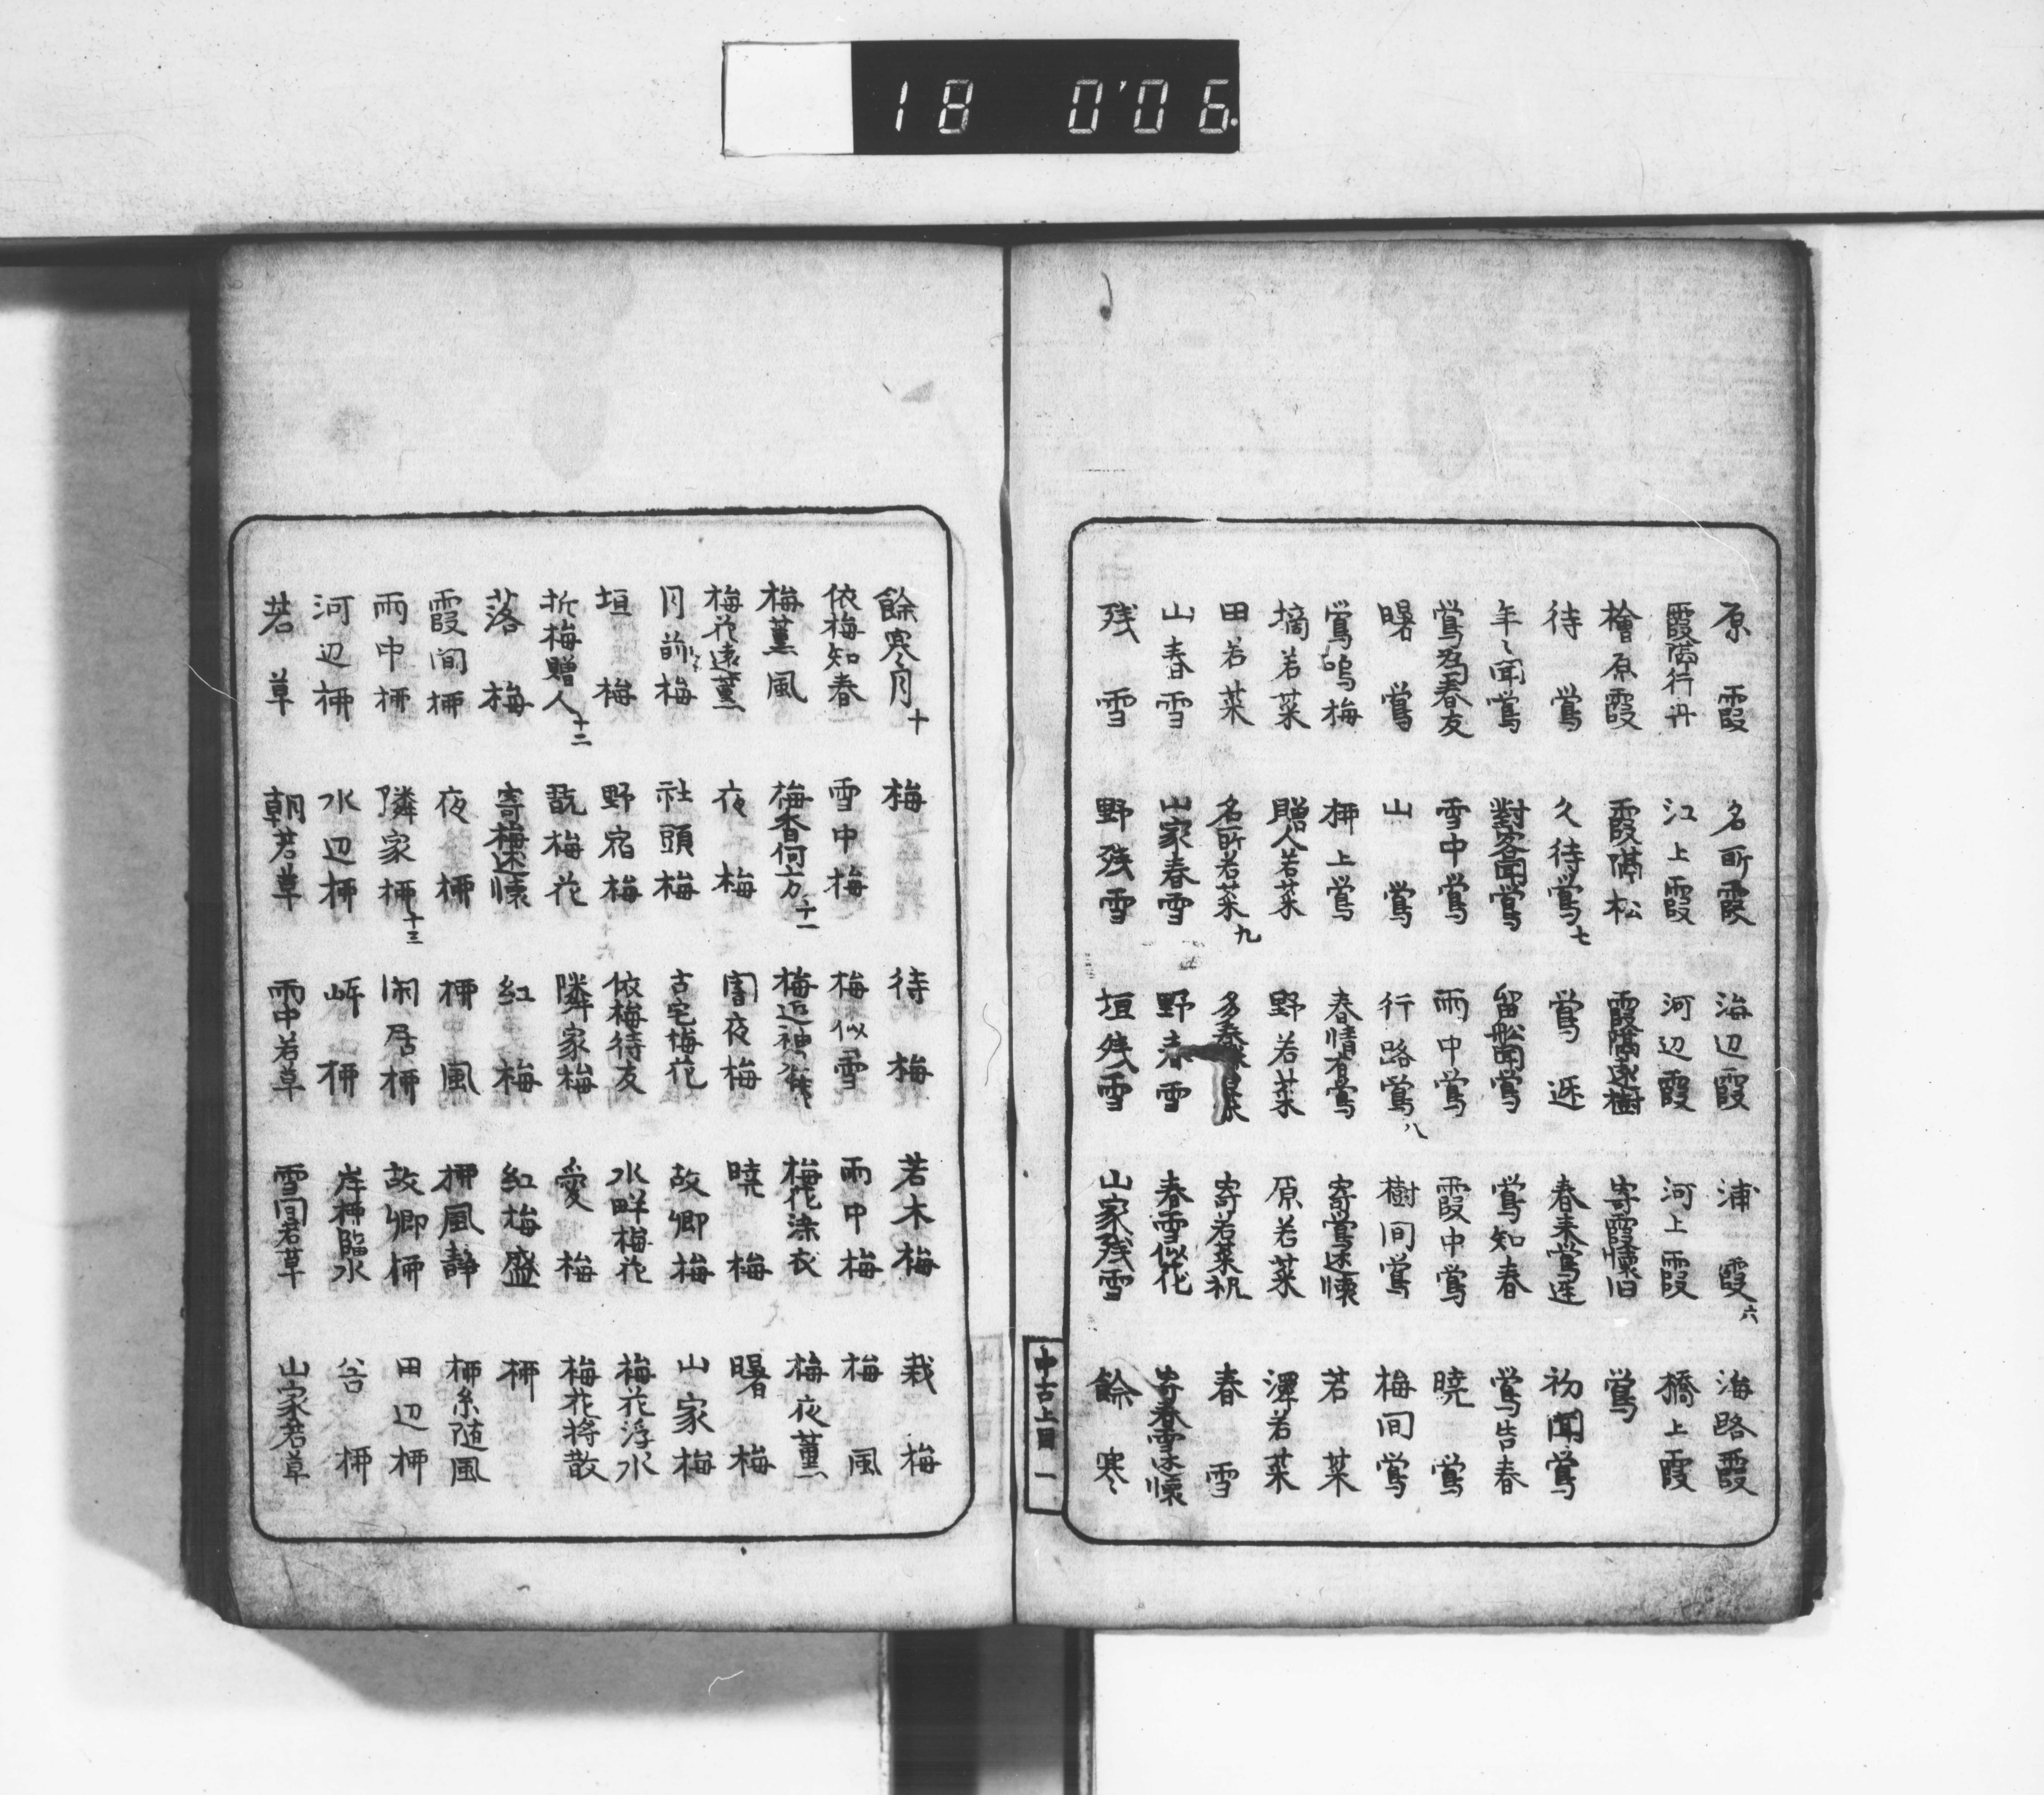 18 0'06.
原霞 名所霞 海辺霞 浦霞六 海路霞
霞隔行舟 江上霞 河辺霞 河上霞 橋上霞
檜原霞 霞隔松 霞隔遠樹 寄霞懐旧 鴬
待鴬 久待鴬七 鴬遅 春来鴬遅 初聞鴬
年〻聞鴬 對客聞鴬 留船聞鴬 鴬知春 鴬告春
鴬為春友 雪中鴬 雨中鴬 霞中鴬 暁鴬
曙鴬 山鴬 行路鴬八 樹间鴬 梅间鴬
鴬鳴梅 柳上鴬 春情有鴬 寄鴬述懐 若菜
摘若菜 贈人若菜 野若菜 原若菜 澤若菜
田若菜 名所若菜九 多春 寄若菜祝 春雪
山春雪 山家春雪 野春雪 春雪似花 寄春雪述懐
残雪 野残雪 垣残雪 山家残雪 餘寒
中古上目 一
餘寒月十 梅 待梅 若木梅 栽梅
依梅知春 雪中梅 梅似雪 雨中梅 梅風
梅薫風 梅香何方十一 梅近袖 梅花染衣 梅夜薫
梅花遠薫 夜梅 闇夜梅 暁梅 曙梅
月前梅 社頭梅 古宅梅花 故郷梅 山家梅
垣梅 野宿梅 依梅待友 水畔梅花 梅花浮水
折梅贈人十二 翫梅花 隣家梅 愛梅 梅花将散
落梅 寄梅述懐 紅梅 紅梅盛 柳
霞间柳 夜柳 柳風 柳風静 柳糸随風
雨中柳 隣家柳十三 閑居柳 故郷柳 田辺柳
河辺柳 水辺柳 岸柳 岸柳臨水 谷柳
若草 朝若草 雨中若草 雪间若草 山家若草